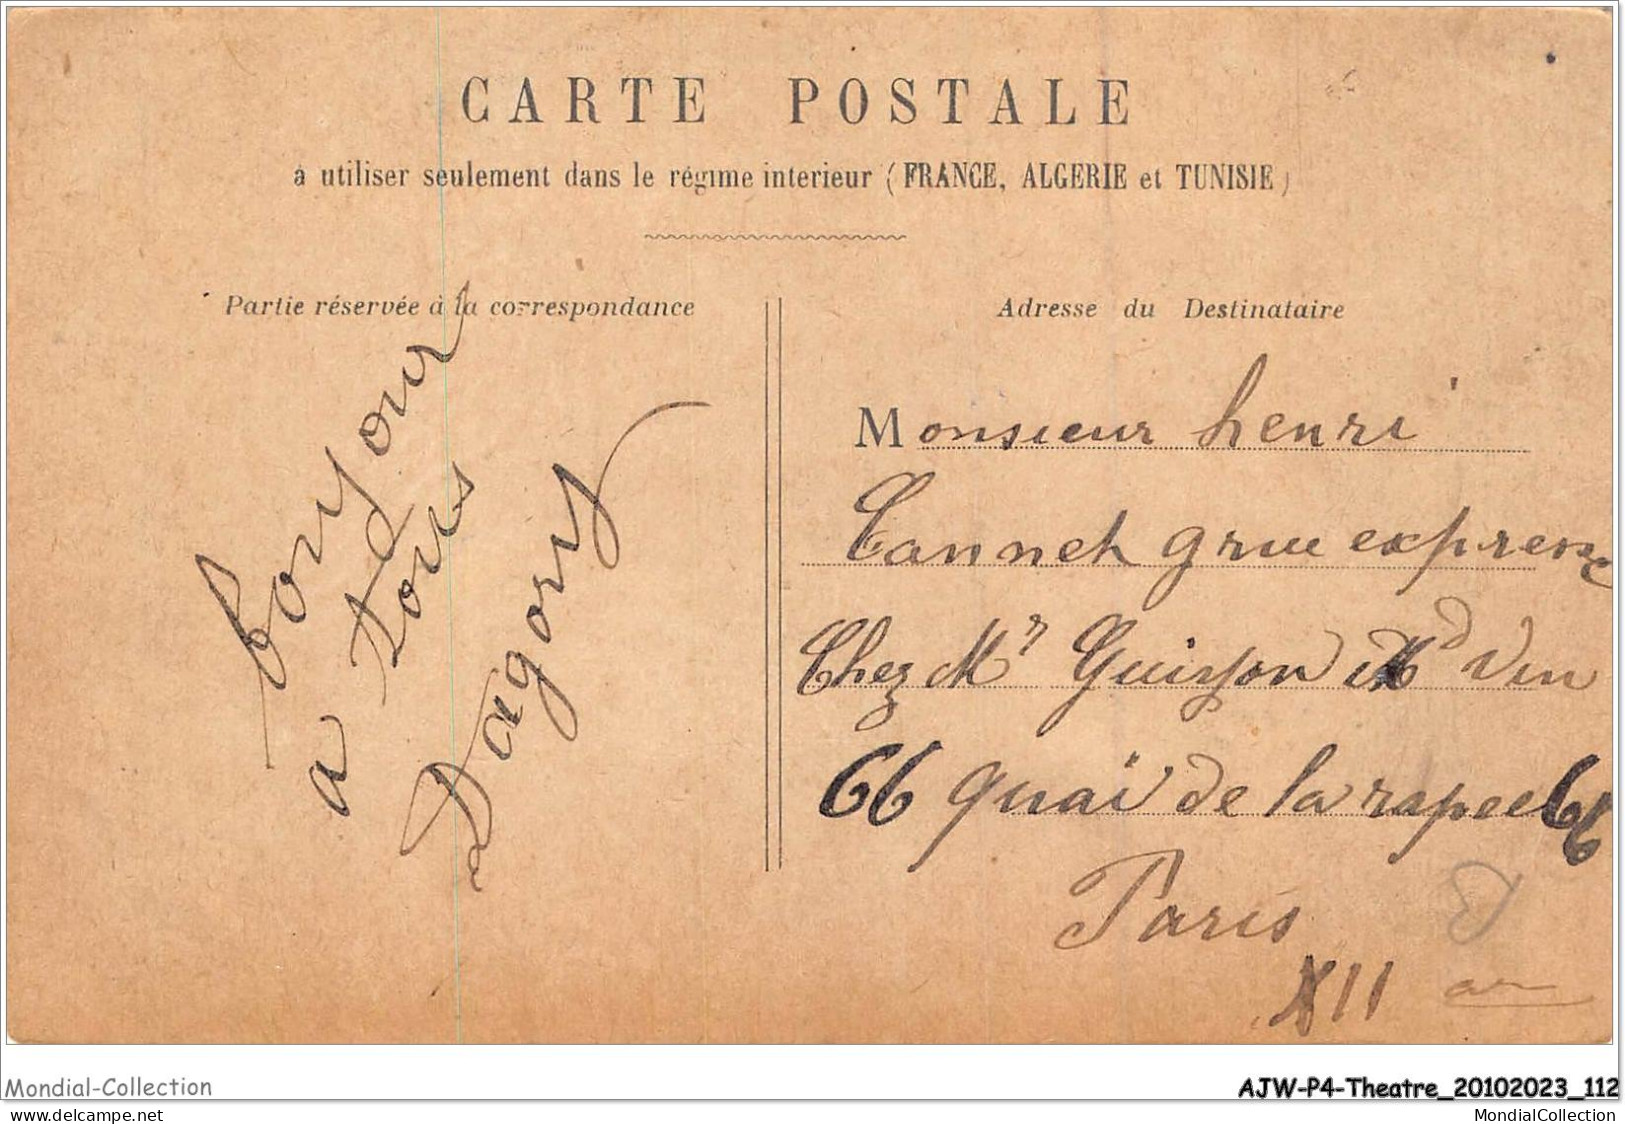 CARTE POSTALE
à utiliser seulement dans le régime interieur (FRANCE, ALGERIE et TUNISIE)
Partie réservée à la correspondance
bonjour
a tous
Dagory
Adresse du Destinataire
Monsieur henri
Cannet grue express
Chez Mr Guisson Md Vin
66 quai de la rapee 66
Paris
XII
Mondial-Collection
AJW-P4-Theatre_20102023_112
www.delcampe.net
MondialCollection